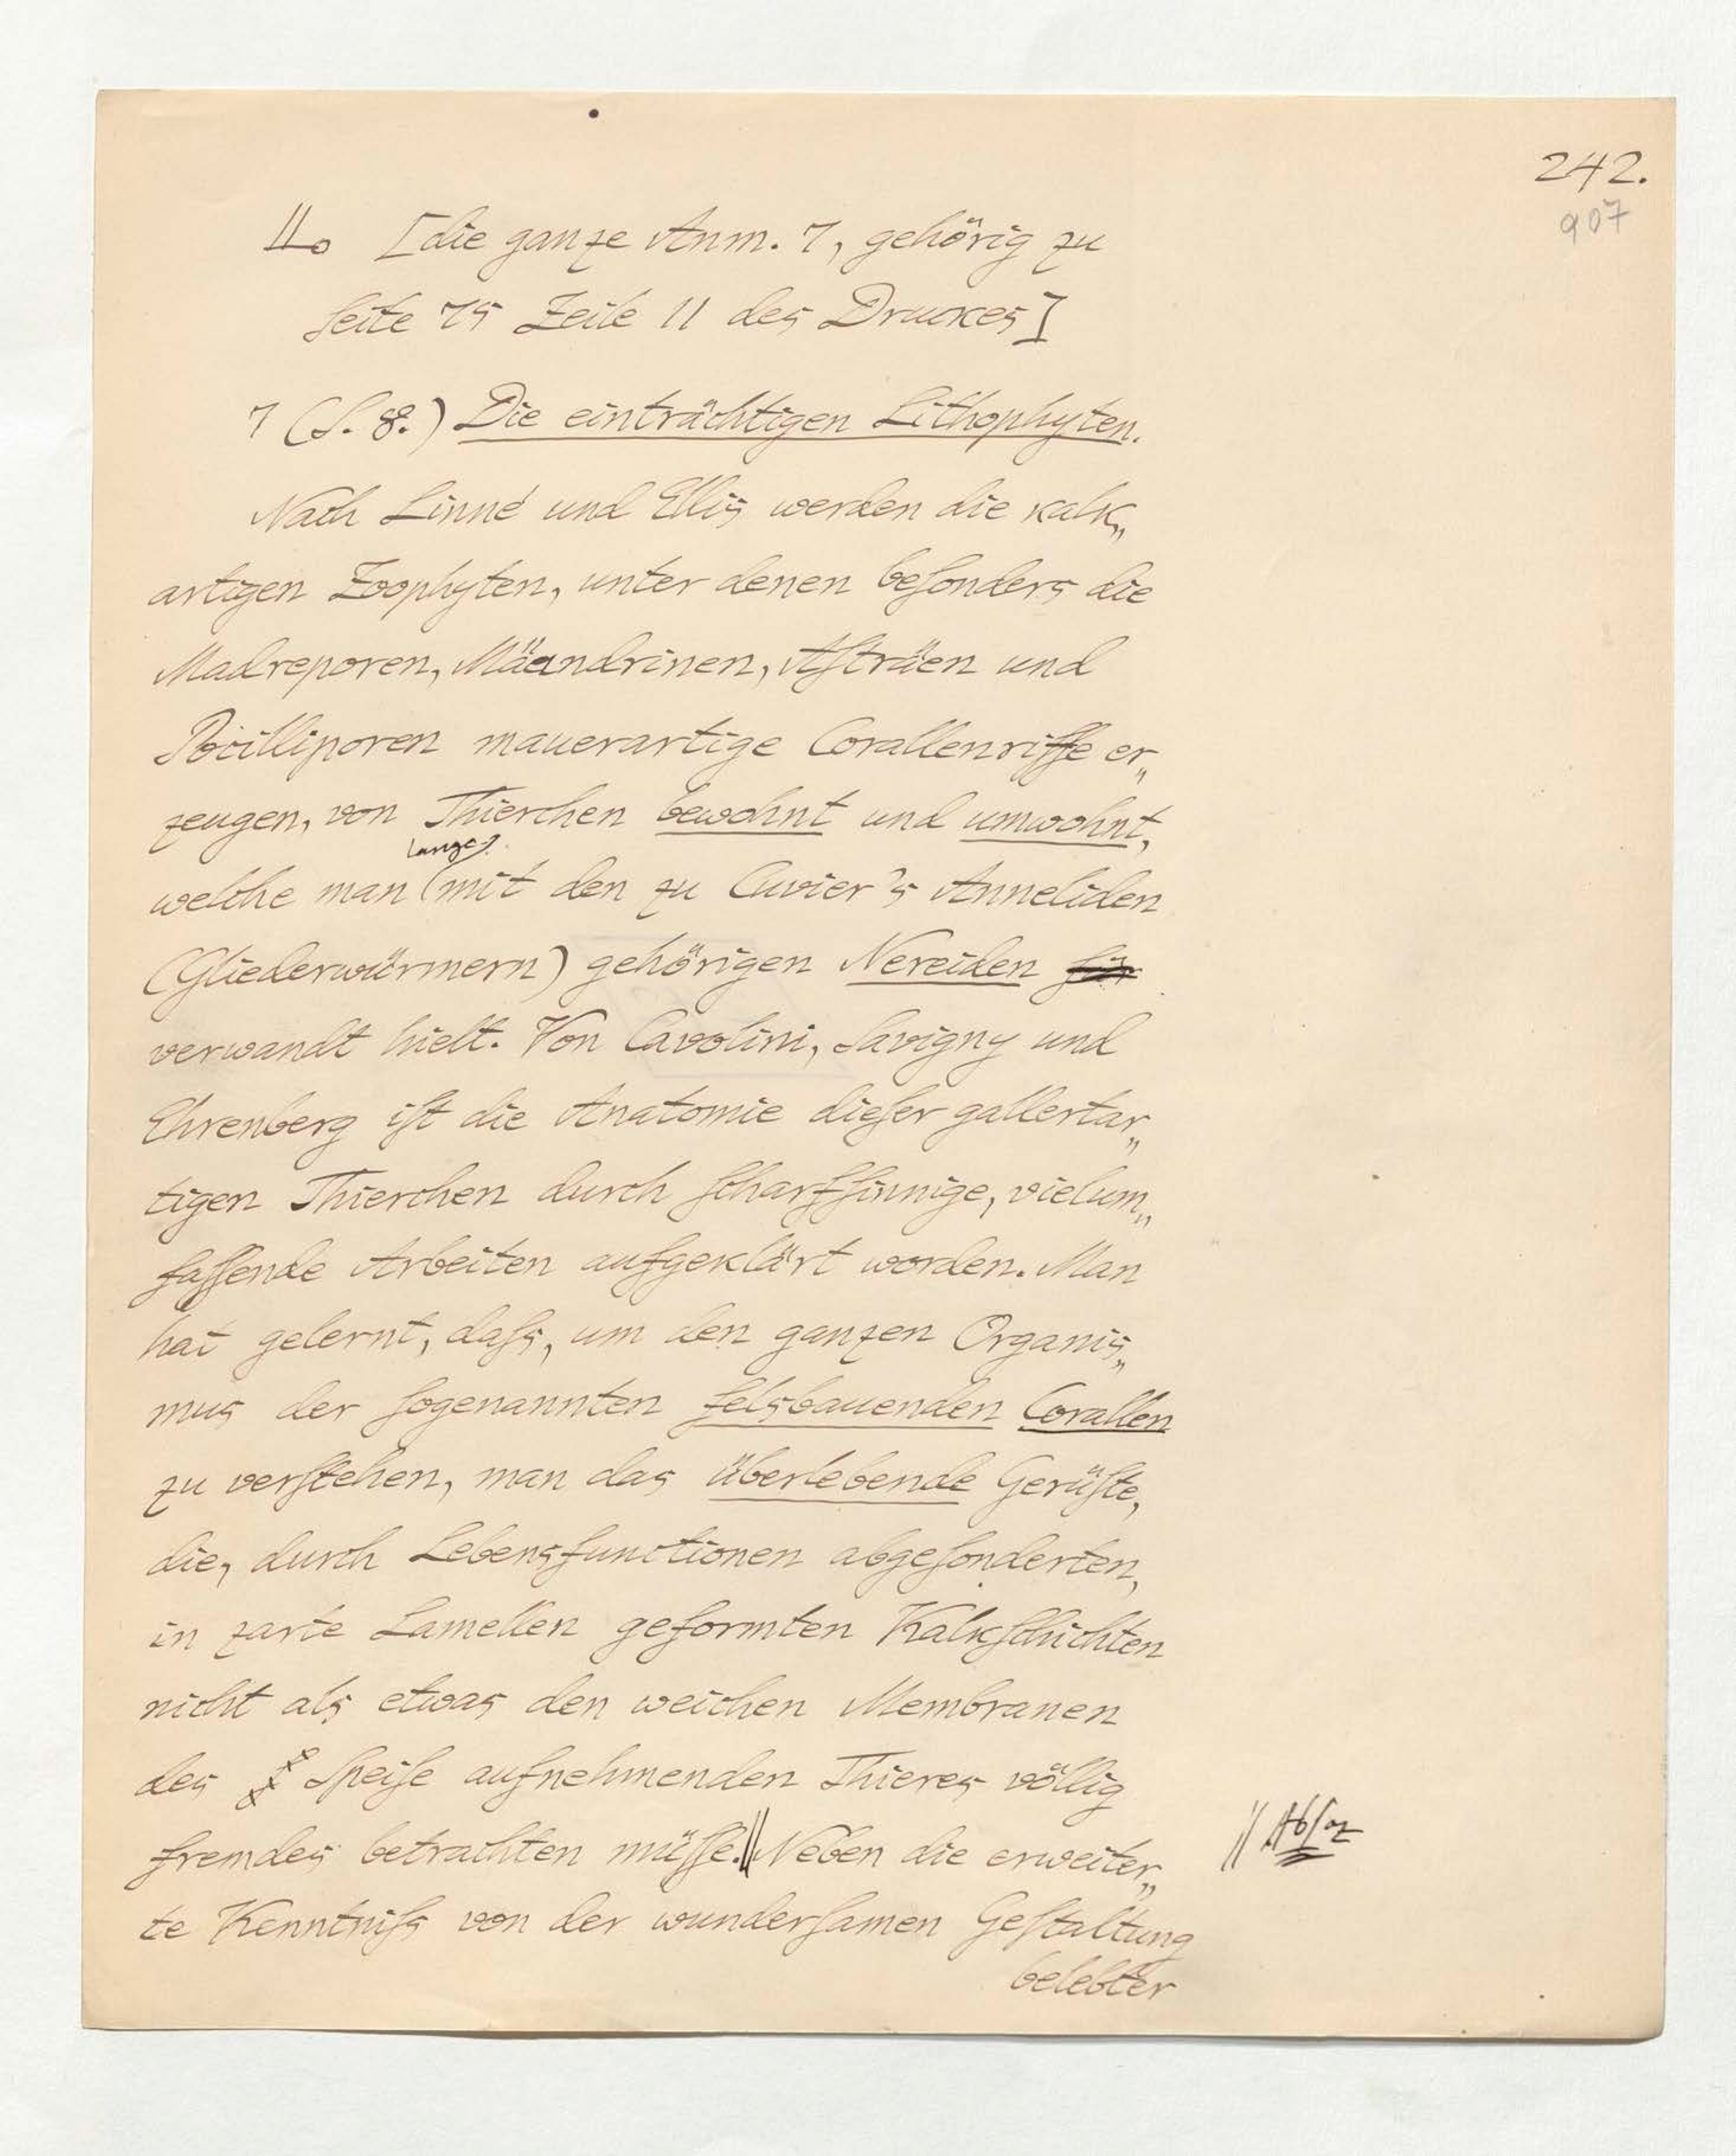 242.
907
II. [die ganze Anm. 7, gehörig zu
Seite 75 Zeile 11 des Druckes]
7 (S. 8.) Die einträchtigen Lithophyten.
Nach Linné und Ellis werden die kalk„
artigen Zoophyten, unter denen beſonders die
Madreporen, Mäandrinen, Aſträen und
Pocilliporen mauerartige Corallenriffe er„
zeugen, von Thierchen bewohnt und umwohnt,
lange
welche man (mit den zu Cuvier's Anneliden
(Gliederwürmern) gehörigen Nereiden für
verwandt hielt. Von Cavolini, Savigny und
Ehrenberg iſt die Anatomie dieſer gallertar„
tigen Thierchen durch ſcharfſinnige, vielum„
faſſende Arbeiten aufgeklärt worden. Man
hat gelernt, daſs, um den ganzen Organis„
mus der ſogenannten felsbauenden Corallen
zu verſtehen, man das überlebende Gerüſte,
die, durch Lebensfunctionen abgeſonderten,
in zarte Lamellen geformten Kalkſchichten
nicht als etwas den weichen Membranen
des Speiſe aufnehmenden Thieres völlig
fremdes betrachten müſſe.|| Neben die erweiter„
|| Abſaz
te Kenntniſs von der wunderſamen Geſtaltung
belebter